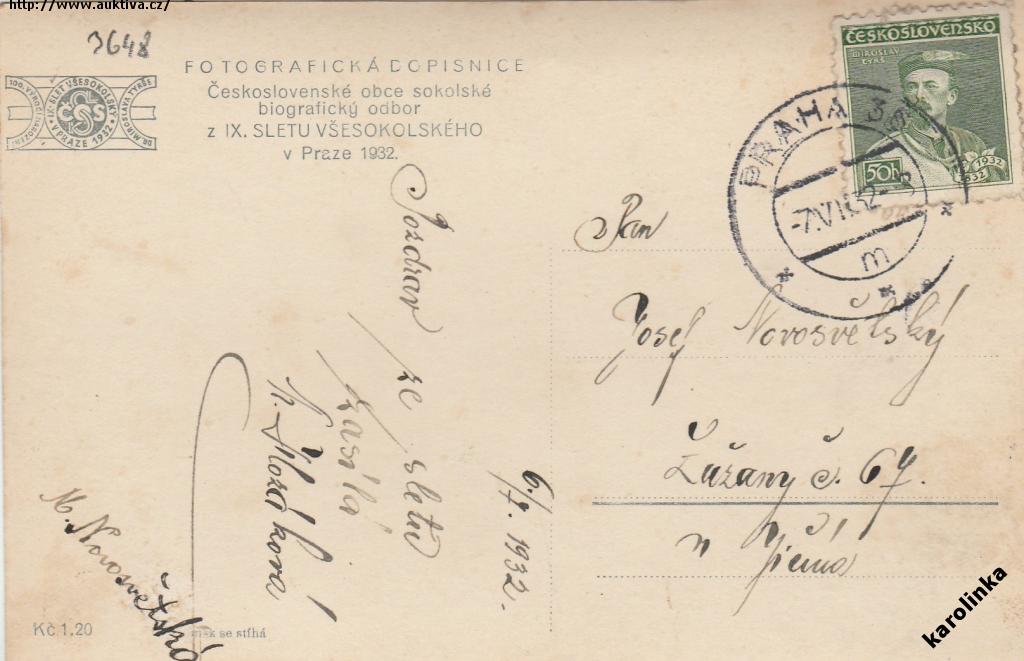 http://www.auktiva.cz/
3648
FOTOGRAFICKÁ DOPISNICE
Československé obce sokolské
biografický odbor
z IX. SLETU VŠESOKOLSKÉHO
v Praze 1932.
100. VÝROČÍ NAROZENÍ
IX. SLET VŠESOKOLSKÝ
V PRAZE 1932
ČOS
DR. MIROSLAVA TYRŠE
ČESKOSLOVENSKO
MIROSLAV
TYRŠ
50h
1832
1932
PRAHA 38
-7.VII.32
m
Pozdrav ze sletu
zasílá
6./7. 1932.
M. Novosvětská
Pan
Josef Novosvětský
Lužany č. 67.
u Jičína
Kč 1.20
tisk se stíhá
karolinka